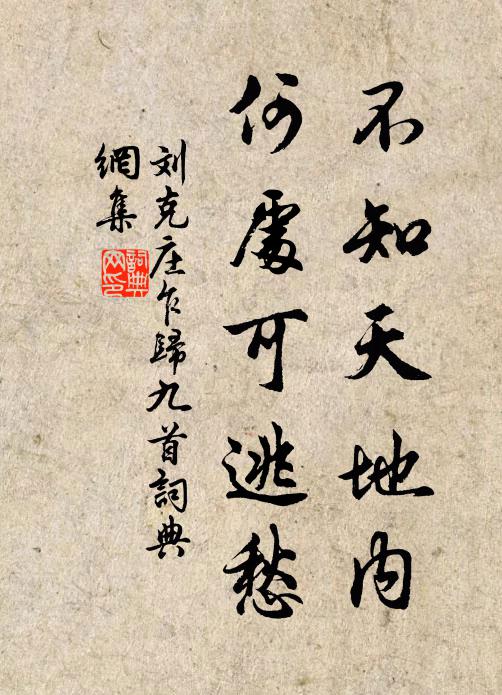 不知天地内
何處可逃愁
刘克庄乍歸九首詞典
網集
詞典网印